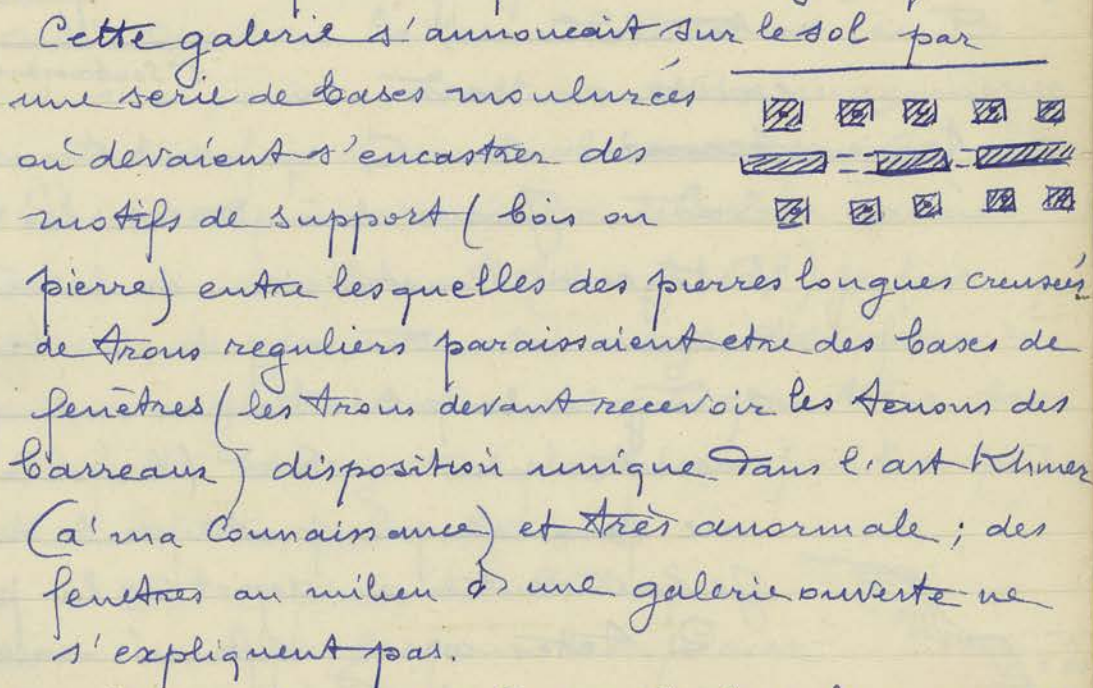 Cette galerie s'annoncait sur le sol par
une serie de bases moulurées
où devaient s'encastrer des
motifs de support ( bois ou
pierre) entre lesquelles des pierres longues creusées
de trous reguliers paraissaient etre des bases de
fenètres ( les trous devant recevoir les tenons des
barreaux ) disposition unique dans l'art Khmer
(a' ma Connaissance) et très anormale ; des
fenetres au milieu d'une galerie ouverte ne
s'expliquent pas.